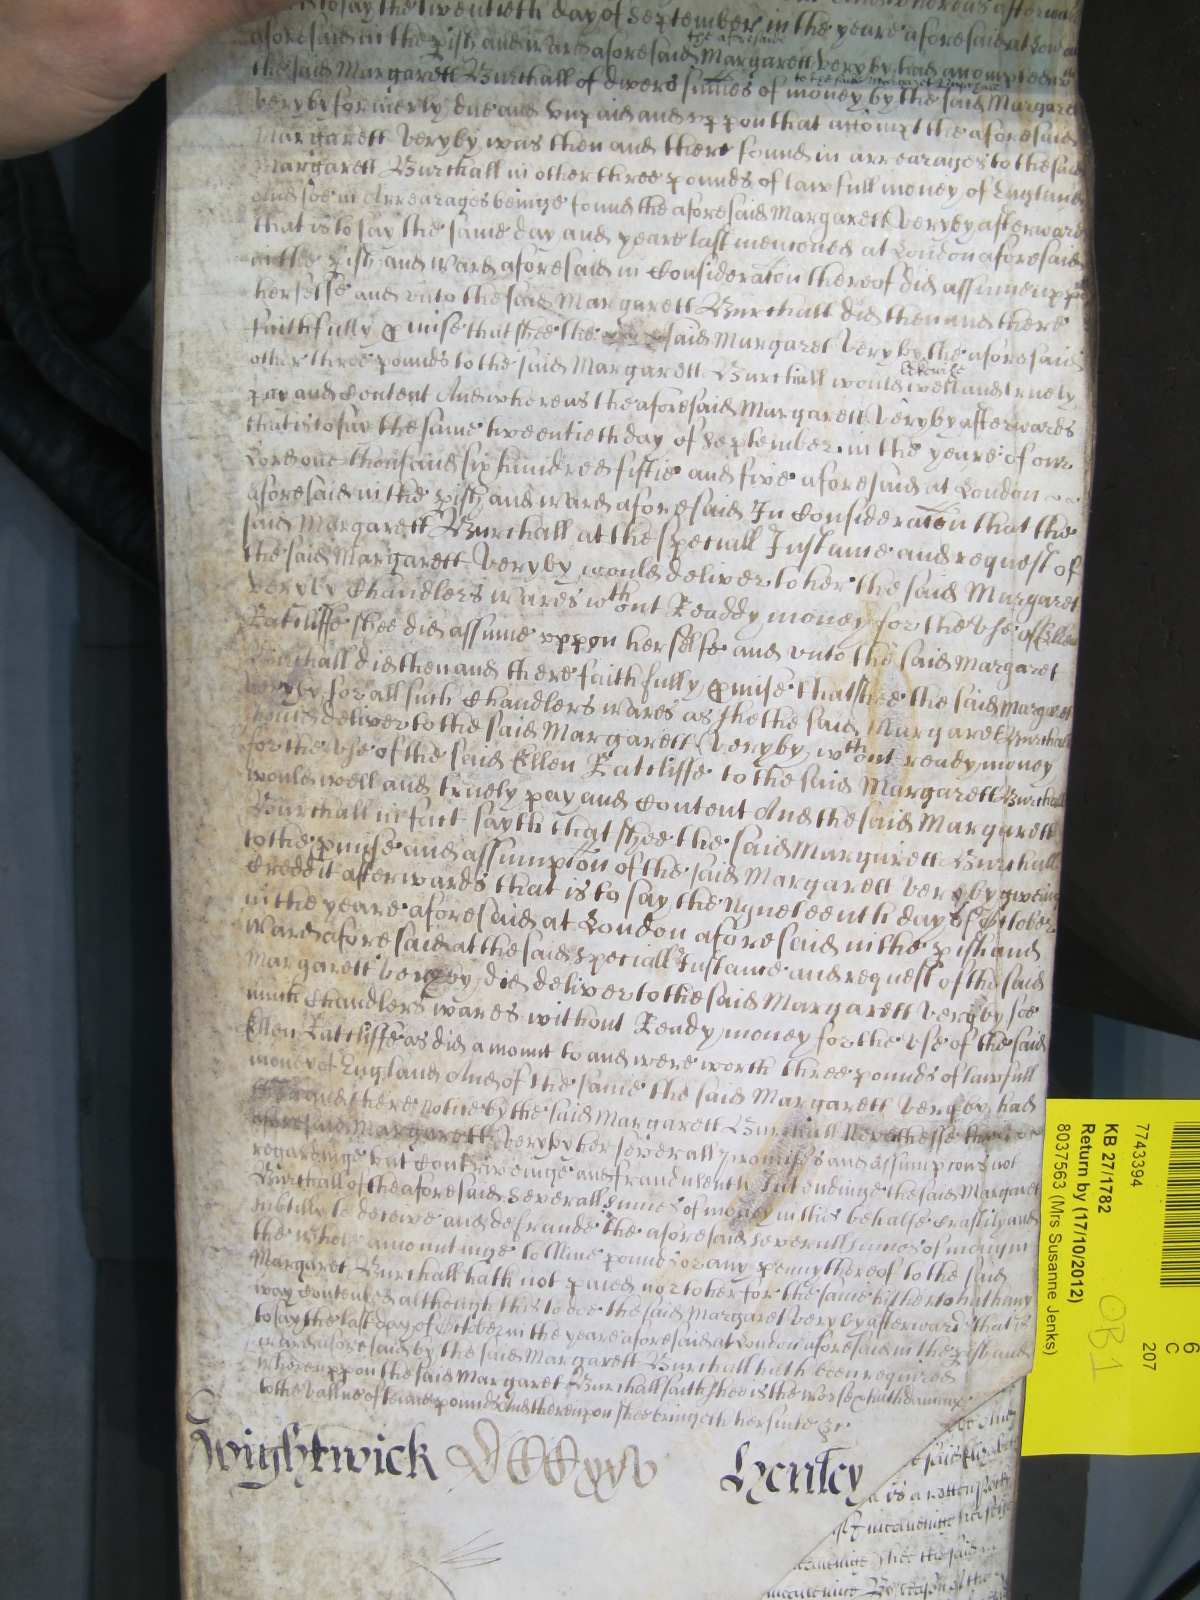 to say the twentieth day of September in the yeare aforesaid at London
aforesaid in the pish and ward aforesaid the aforesaid Margarett Veryby had accompted with
the said Margarett Burchall of divers sumes of money by the said Margarett
Veryby formerly due and unpaid to the said Margarett Burchall and uppon that accompt the aforesaid
Margarett Veryby was then and there found in arrearages to the said
Margarett Burchall in other three pounds of lawfull money of England
And soe in Arrearages beinge found the aforesaid Margarett Veryby afterwards
that is to say the same day and yeare last menconed at London aforesaid
in the pish and ward aforesaid in Consideracon thereof did assume uppon
herselfe and unto the said Margarett Burchall did then and there
faithfully pmise that shee the said Margaret Veryby the aforesaid
other three pounds to the said Margarett Burchall would likewise well and truely
pay and Content And whereas the aforesaid Margarett Veryby afterwards
that is to say the same twentieth day of September in the yeare of our
Lord one thousand six hundred fiftie and five aforesaid at London
aforesaid in the pish and ward aforesaid In Consideracon that the
said Margarett Burchall at the speciall Instance and request of
the said Margarett Veryby would deliver to her the said Margaret
Veryby Chandlers wares wthout Readdy money for the use of Ellen
Ratcliffe shee did assume uppon herselfe and unto the said Margaret
Burchall did then and there faithfully pmise that shee the said Margarett
Veryby for all such Chandlers wares as shee the said Margaret Burchall
should deliver to the said Margarett Veryby wthout ready money
for the use of the said Ellen Ratcliffe to the said Margarett Burchall
would well and truely pay and Content And the said Margarett
Burchall in fact sayth that shee the said Margarett Burchall
to the pmise and assumpcon of the said Margarett Veryby giveing
Creddit afterwards that is to say the Nyneteenth day of October
in the yeare aforesaid at London aforesaid in the pish and
Ward aforesaid at the said speciall Instance and request of the said
Margarett Veryby did deliver to the said Margarett Veryby soe
much Chandlers wares without Ready money for the use of the said
Ellen Ratcliffe as did amount to and were worth three pounds of lawfull
money of England And of the same the said Margarett Veryby had
then and there notice by the said Margarett Burchall Neverthesse the
aforesaid Margarett Veryby her severall promises and assumpcons not
regardinge but Contriveinge and fraudulently Intendinge the said Margaret
Burchall of the aforesaid severall sumes of money in this behalfe Craftily and
subtilly to deceive and defraude the aforesaid severall sumes of money in
the whole amountinge to Nine pounds or any penny thereof to the said
Margaret Burchall hath not paied nor to her for the same hitherto hath any
way contented although this to doe the said Margaret Veryby afterwards that is
to say the last day of October in the yeare aforesaid at London aforesaid in the pish and
ward aforesaid by the said Margarett Burchall hath been required
whereuppon the said Margaret Burchall saith shee is the worse & hath damage
to the vallue of tenne pounds And thereupon shee bringeth her suite &c
Wightwick Henley
7743394
KB 27/1782
Return by (17/10/2012)
8037563 (Mrs Susanne Jenks)
6
C
207
OB 1